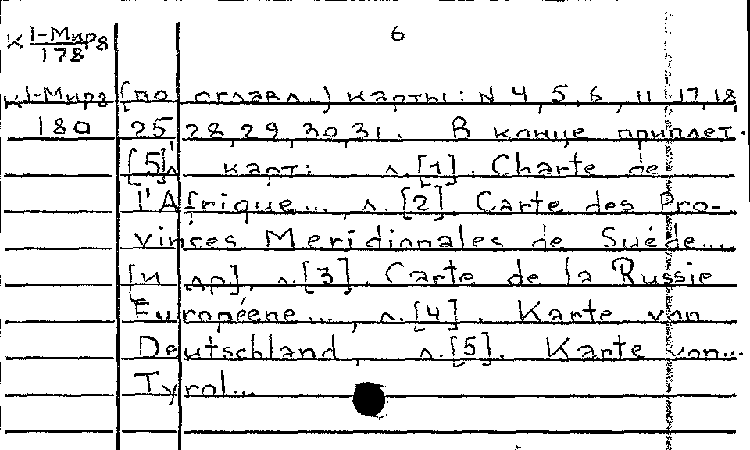 К I-Мира 6
178
К I-Мира (по оглавл.) карты: N 4, 5, 6, 11, 17, 18,
180 25, 28, 29, 30, 31. В конце приплет.
[5] карт: л.[1]. Charte de
l'Afrique... , л.[2]. Carte des Pro-
vinces Meridionales de Suéde...
[и др], л.[3]. Carte de la Russie
Européene... , л.[4]. Karte von
Deutschland, л.[5]. Karte von...
Tyrol...